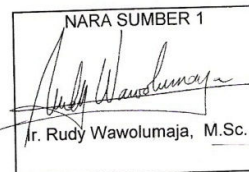 NARA SUMBER 1
Rudy Wawolumaja
Ir. Rudy Wawolumaja, M.Sc.